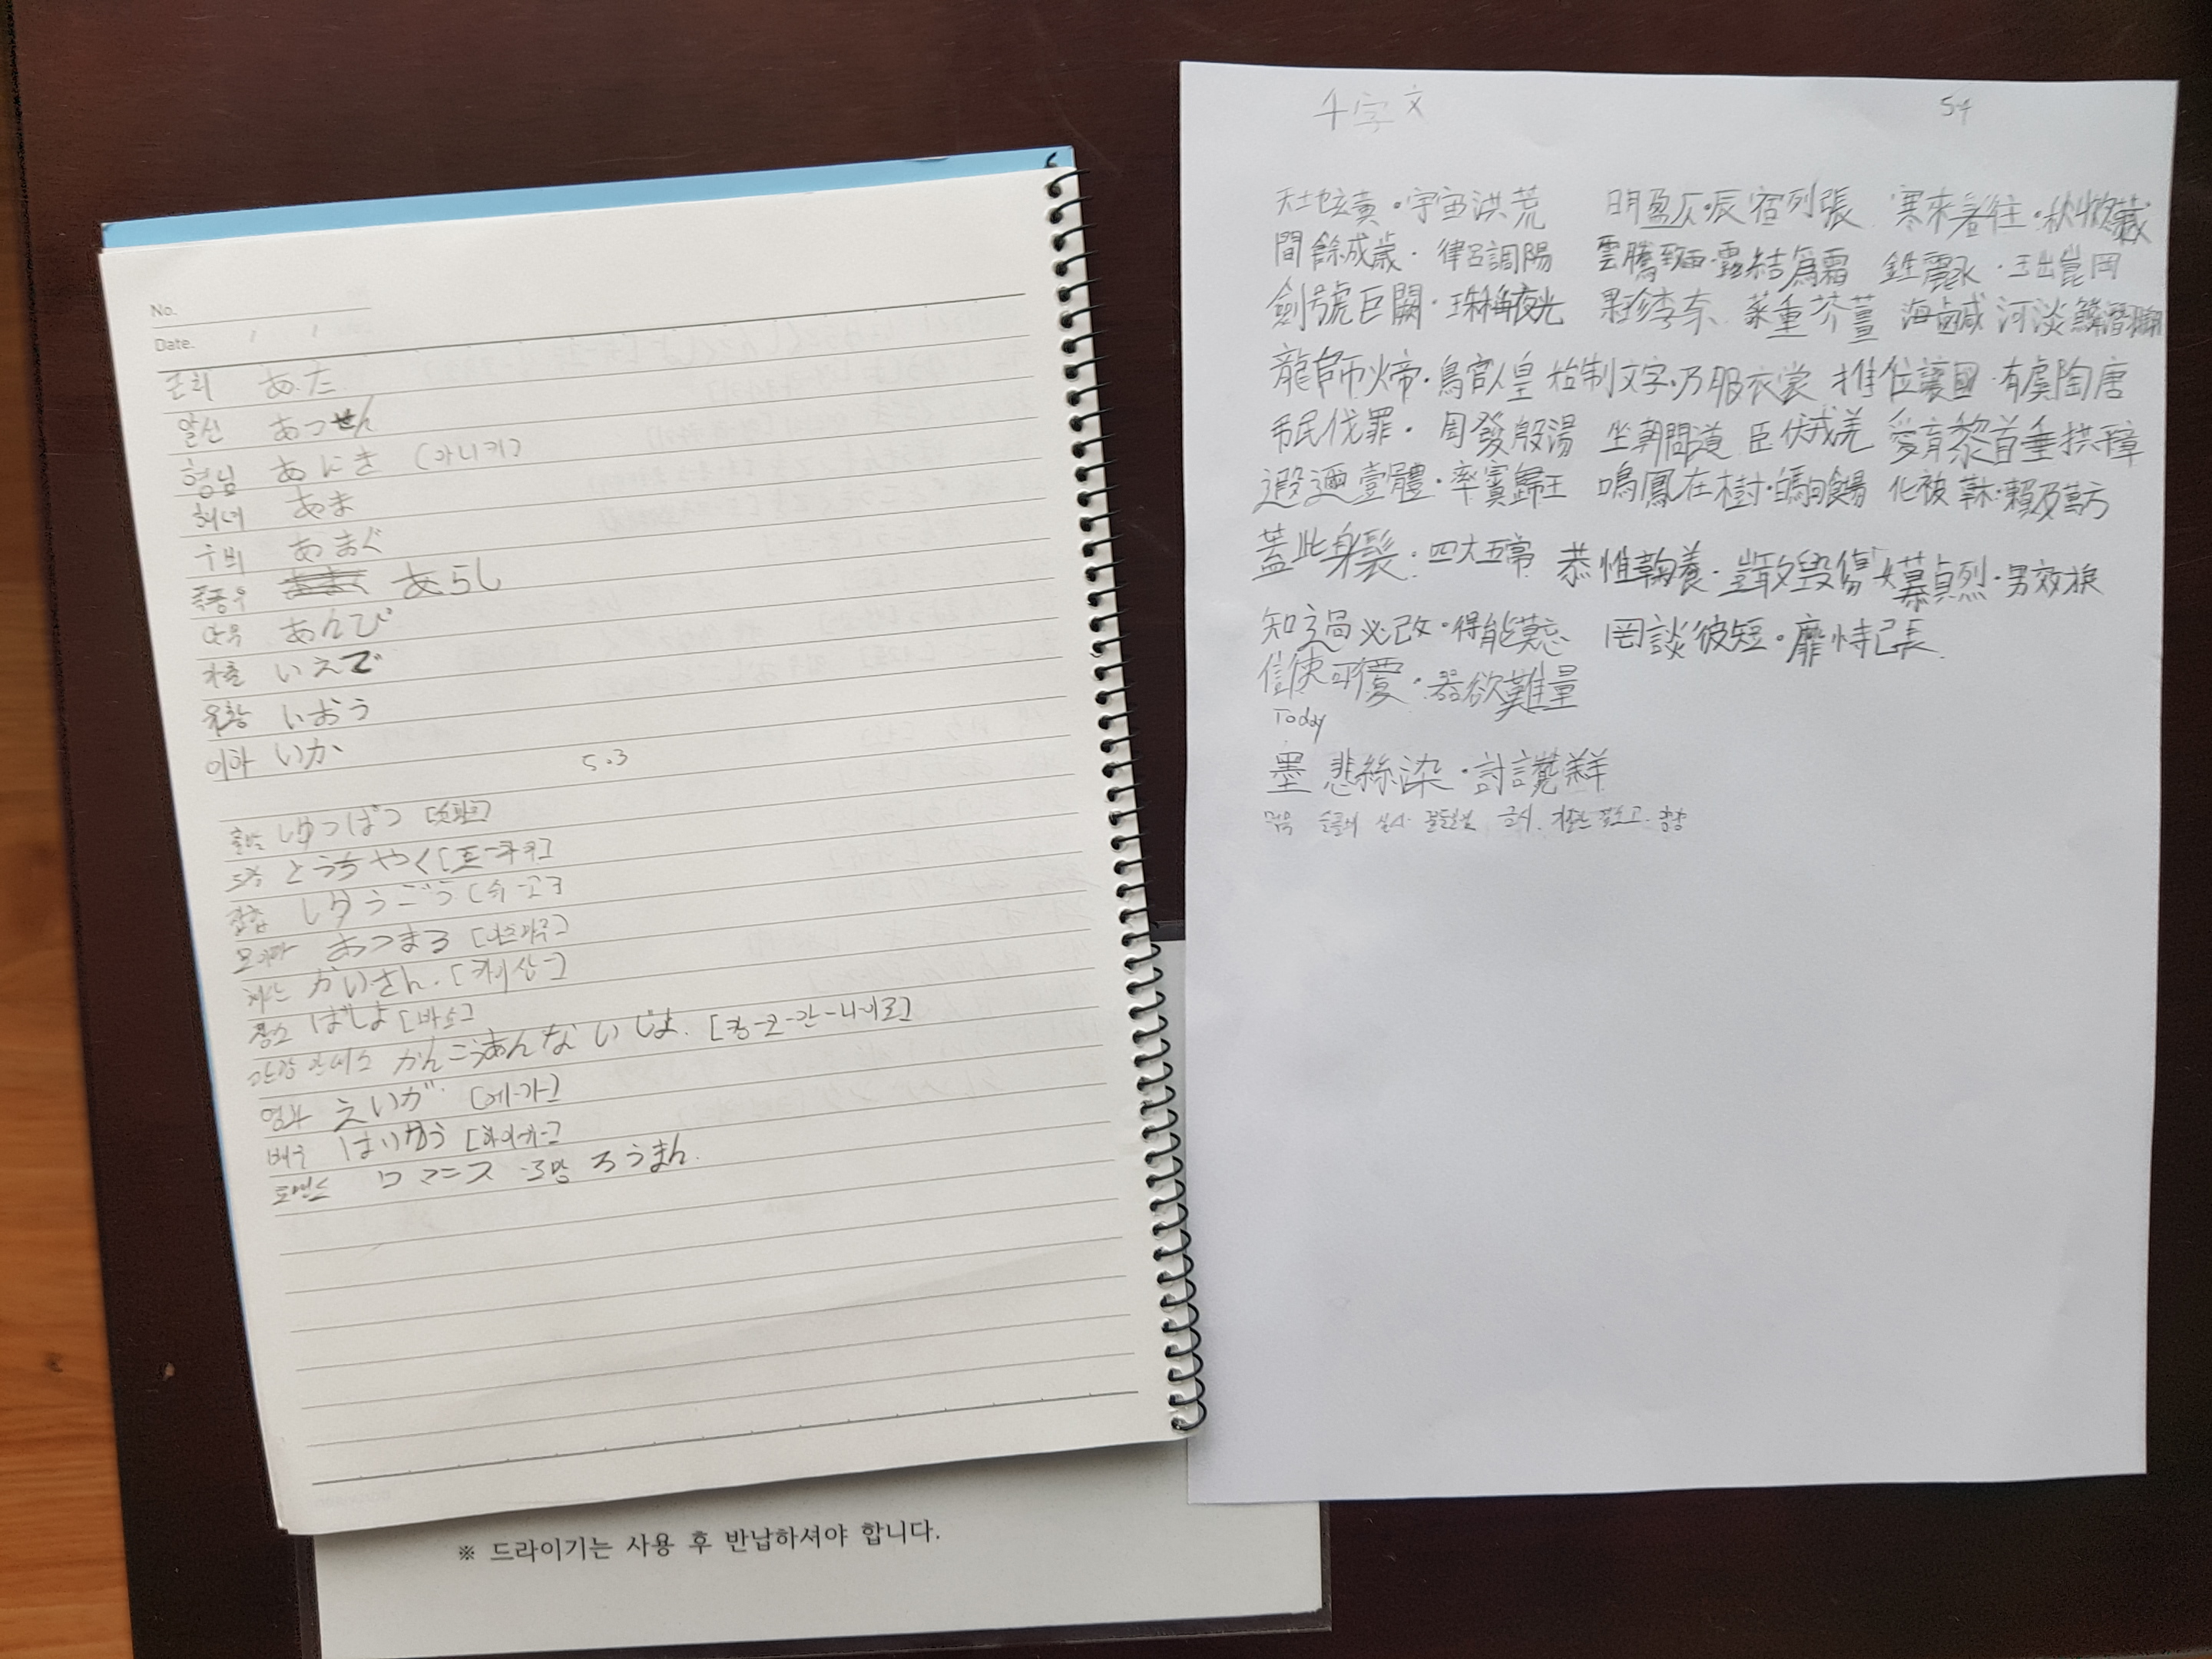 No.
Date. / /
あだ
알선 あっせん
형님 あにき (아니키)
해녀 あま
우비 あまぐ
폭풍우 あらし
안목 あんび
가출 いえで
유황 いおう
이하 いか
5.3
출발 しゅっぱつ
도착 とうちゃく
집합 しゅうごう [슈-고-]
모이다 あつまる [아츠마루]
해산 かいさん. [카이상-]
장소 ばしょ [바쇼]
관광안내소 かんこうあんないじょ.
영화 えいが [에-가-]
배우 はいゆう [하이유-]
로맨스 ロマニス ろうまん.
※ 드라이기는 사용 후 반납하셔야 합니다.
千字文 5.4
天地玄黃·宇宙洪荒 日月盈仄·辰宿列張 寒來暑往·秋收藏
間餘成歲·律呂調陽 雲騰致雨·露結爲霜 金生麗水·玉出崑岡
劍號巨闕·珠稱夜光 果珍李柰 菜重芥薑 海鹹河淡鱗潛翔
龍師火帝·鳥官人皇 始制文字·乃服衣裳 推位讓國·有虞陶唐
弔民伐罪·周發殷湯 坐朝問道 臣伏戎羌 愛育黎首垂拱平章
遐邇壹體·率賓歸王 鳴鳳在樹·白駒食場 化被草木·賴及萬方
蓋此身髮·四大五常 恭惟鞠養·豈敢毁傷 女慕貞烈·男效
知過必改·得能莫忘 罔談彼短·靡恃己長
信使可覆·器欲難量
Today
墨悲絲染·詩讚羔羊